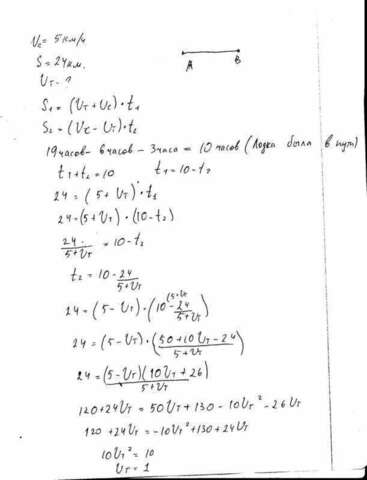 Vc = 5 км/ч
S = 24 км.
Vт - ?
A B
S₁ = (Vт + Vc) · t₁
S₂ = (Vc - Vт) · t₂
19 часов - 6 часов - 3 часа = 10 часов (Лодка была в пути)
t₁ + t₂ = 10 t₁ = 10 - t₂
24 = (5 + Vт) · t₁
24 = (5 + Vт) · (10 - t₂)
24/(5 + Vт) = 10 - t₂
t₂ = 10 - 24/(5 + Vт)
24 = (5 - Vт) · (10 (5 + Vт - 24/(5 + Vт))
24 = (5 - Vт) · ((50 + 10Vт - 24)/(5 + Vт))
24 = (5 - Vт)(10Vт + 26)/(5 + Vт)
120 + 24Vт = 50Vт + 130 - 10Vт² - 26Vт
120 + 24Vт = -10Vт² + 130 + 24Vт
10Vт² = 10
Vт = 1